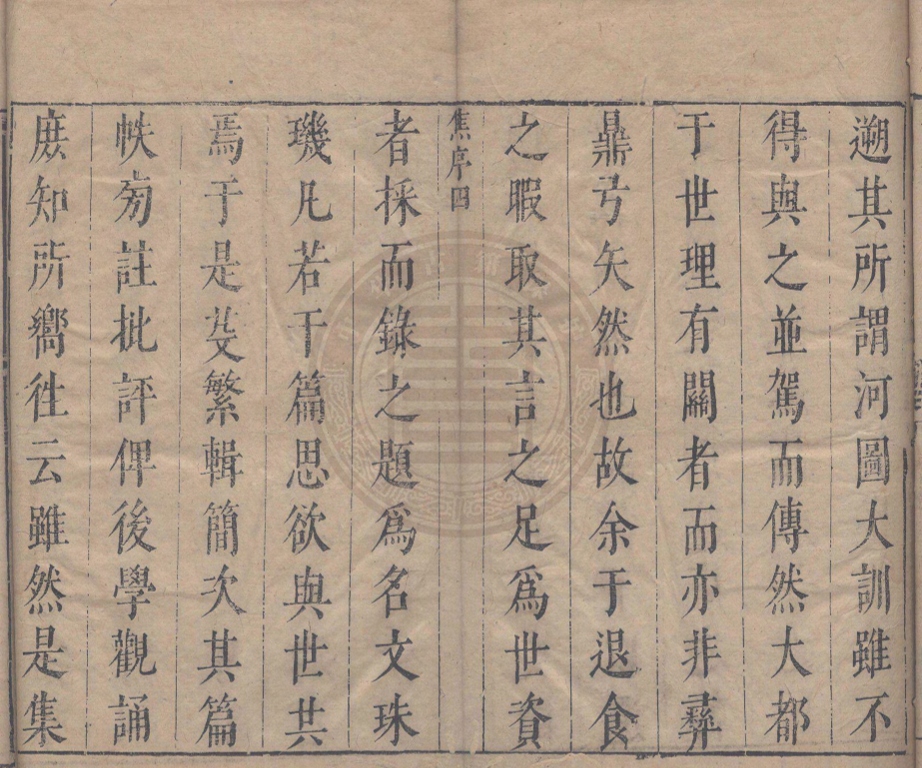 遡其所謂河圖大訓雖不
得與之並駕而傳然大都
于世理有關者而亦非彝
鼎弓矢然也故余于退食
之暇取其言之足爲世資
焦序四
者採而錄之題爲名文珠
璣凡若干篇思欲與世共
焉于是芟繁輯簡次其篇
帙旁註批評俾後學觀誦
庻知所嚮徃云雖然是集